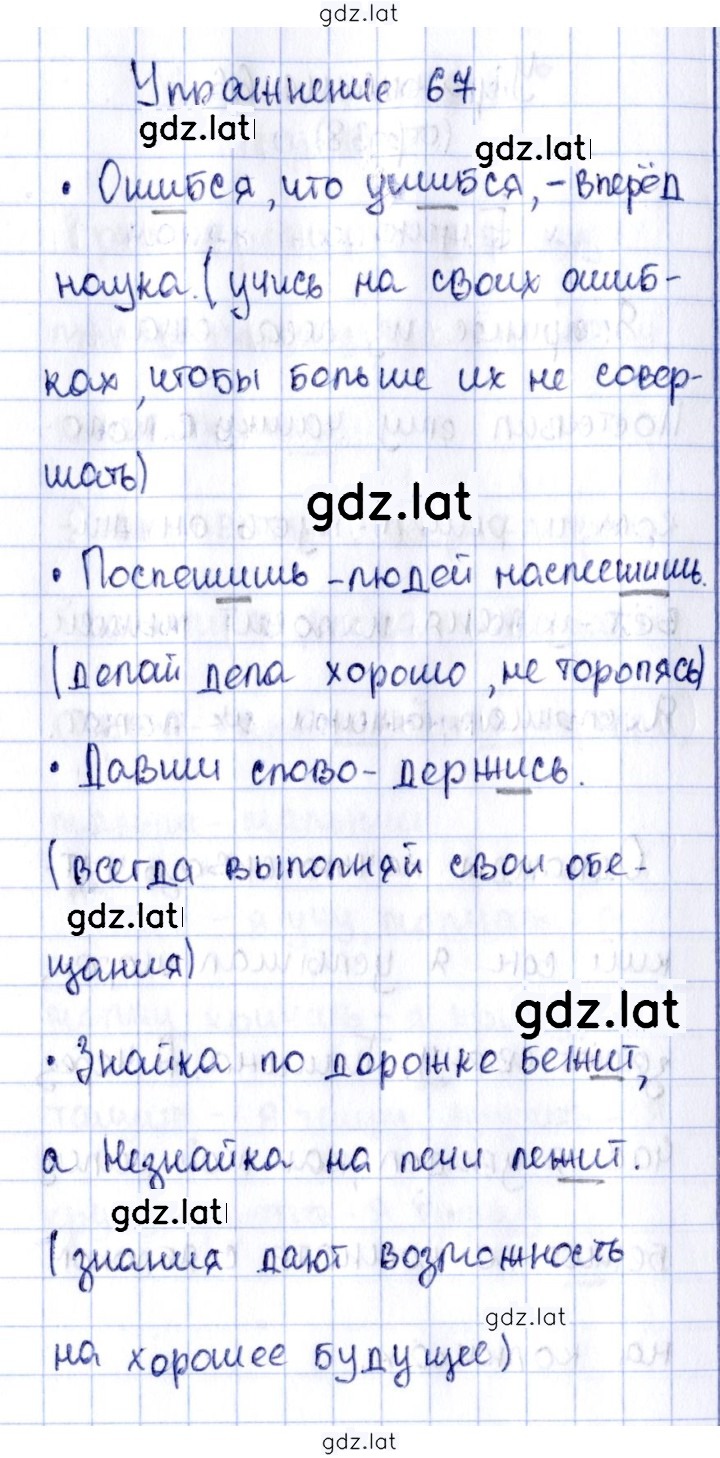 gdz.lat
Упражнение 67
gdz.lat
gdz.lat
• Ошибся, что ушибся, - вперёд
наука. (учись на своих ошиб-
ках, чтобы больше их не совер-
шать)
gdz.lat
• Поспешишь - людей насмешишь.
(делай дела хорошо, не торопясь)
• Давши слово - держись.
(всегда выполняй свои обе-
gdz.lat
щания)
gdz.lat
• Знайка по дорожке бежит,
а Незнайка на печи лежит.
gdz.lat
(знания дают возможность
gdz.lat
на хорошее будущее)
gdz.lat